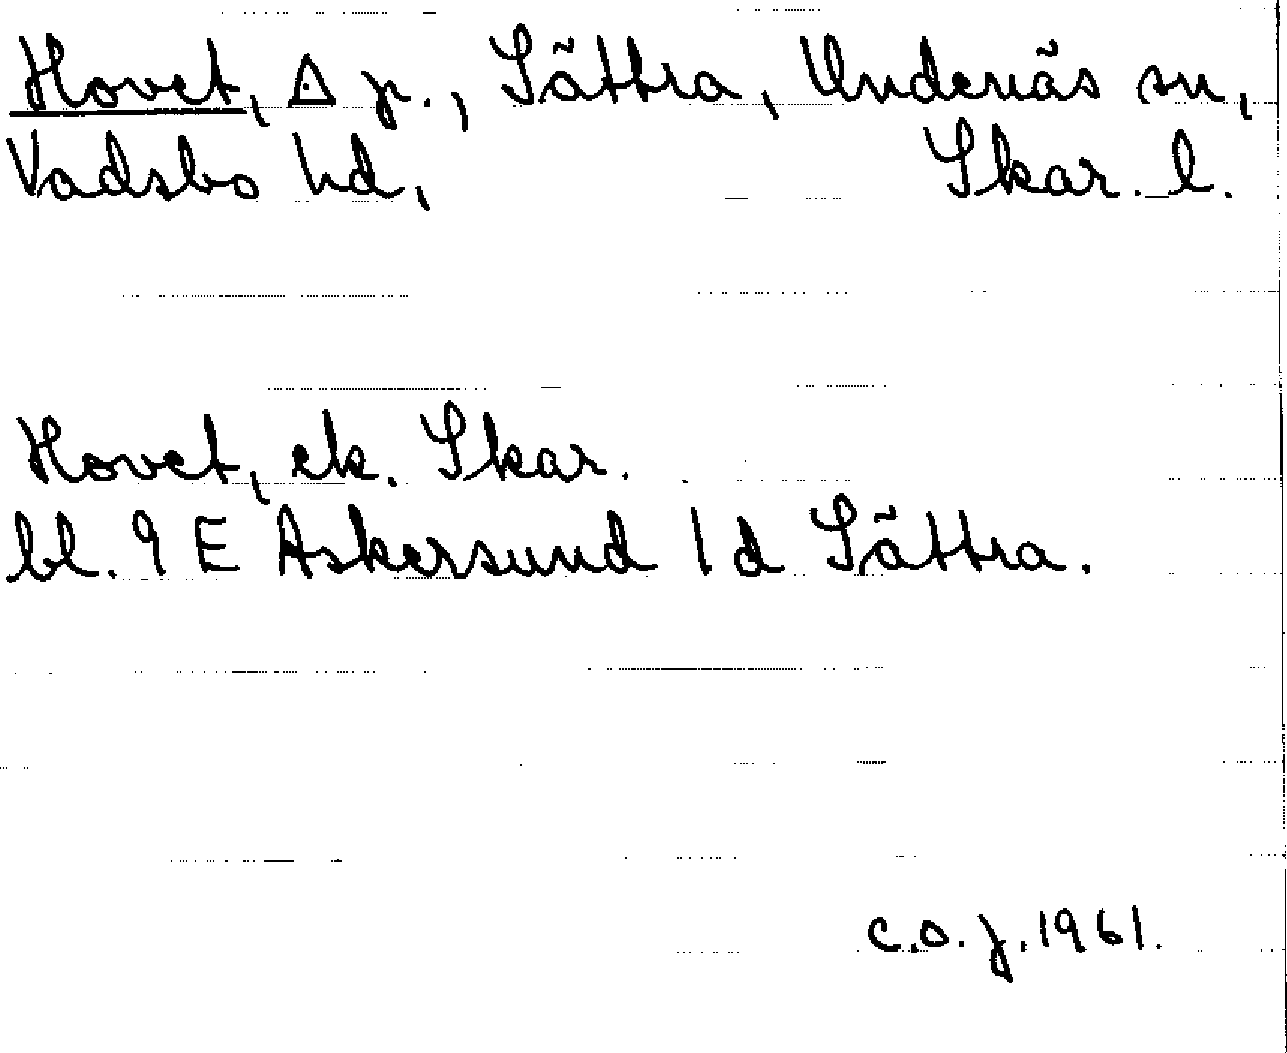 Hovet, △ p., Sättra, Undenäs sn,
Vadsbo hd, Skar. l.
Hovet, ek. Skar.
bl. 9 E Askersund 1 d Sättra.
C.O.J. 1961.